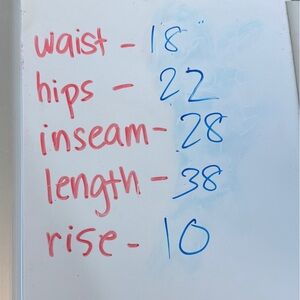 waist - 18"
hips - 22
inseam - 28
length - 38
rise - 10